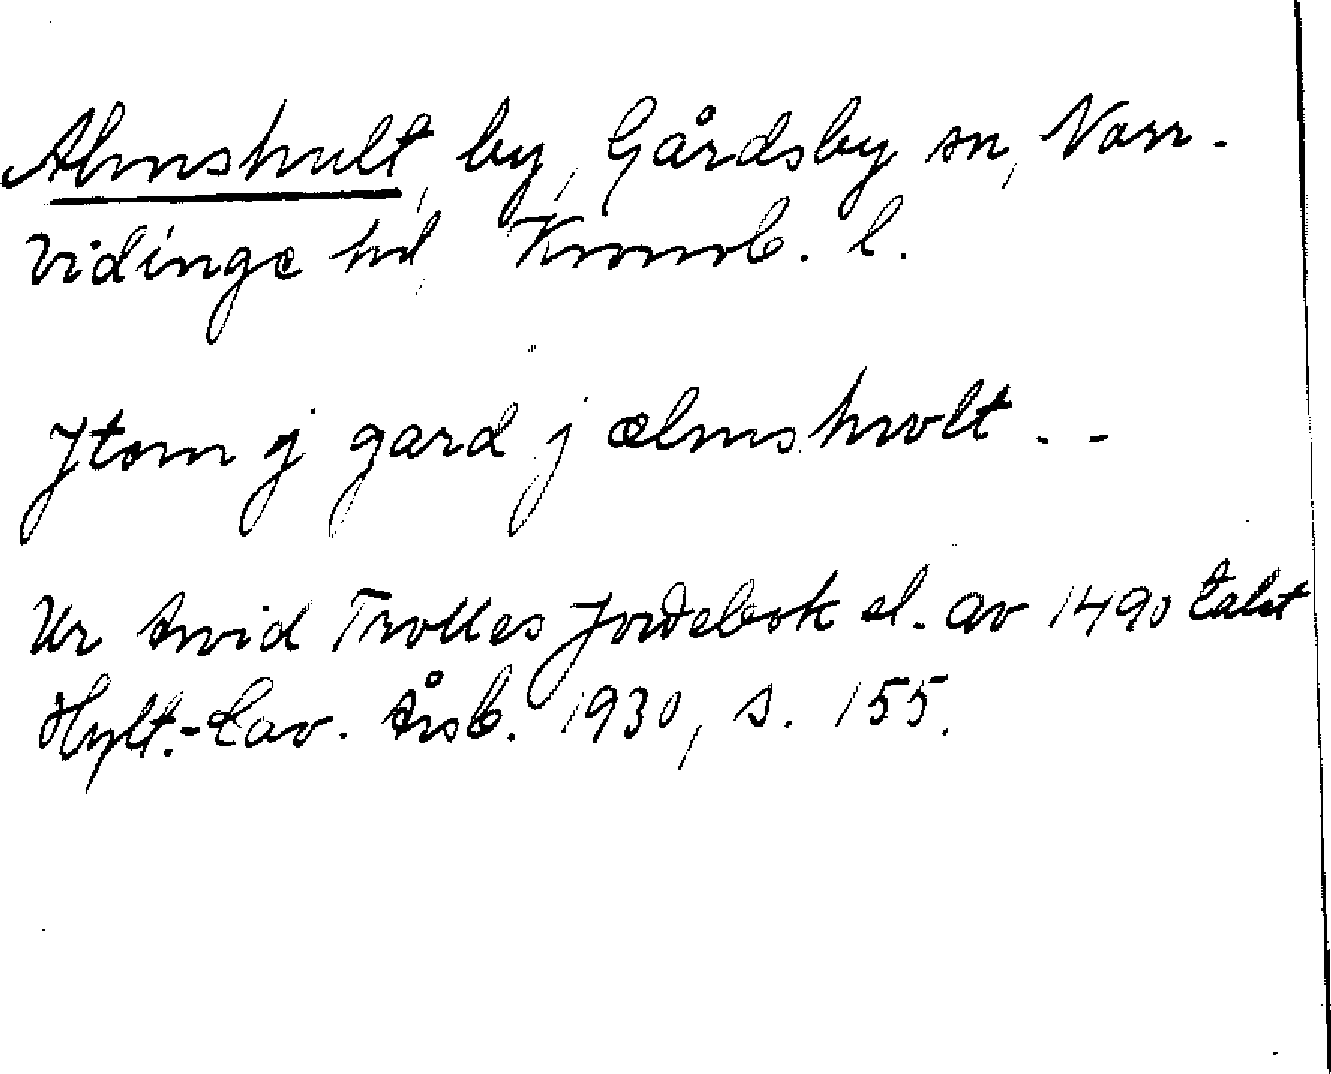 Almshult, by, Gårdsby sn, Norr-
vidinge hd, Kronob. l.
Jtem j gard j ælmshwlt . . -
Ur Arvid Trolles Jordebok sl. av 1490 talet
Hylt.-Cav. Årsb. 1930, s. 155.